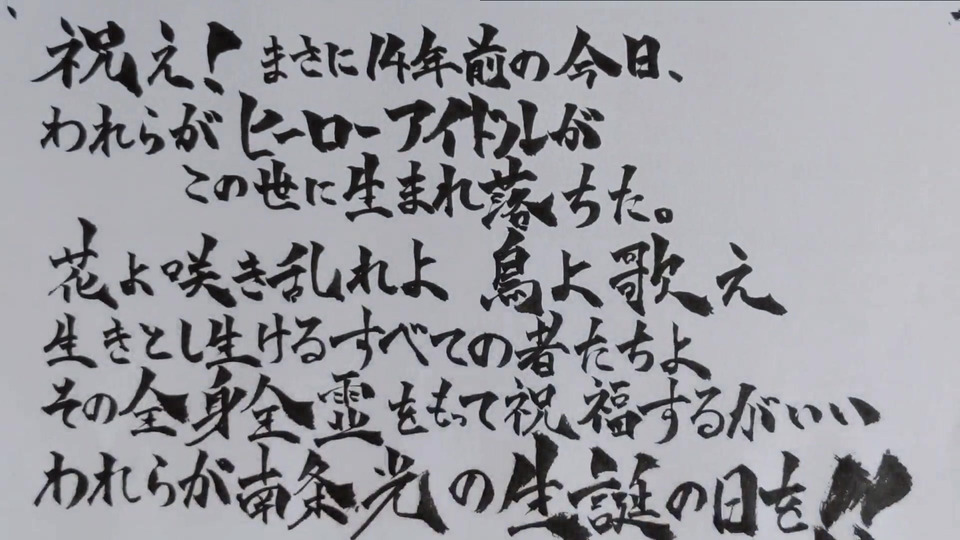 祝え！まさに14年前の今日、
われらがヒーローアイドルが
この世に生まれ落ちた。
花よ咲き乱れよ 鳥よ歌え
生きとし生けるすべての者たちよ
その全身全霊をもって祝福するがいい
われらが南条光の生誕の日を!!